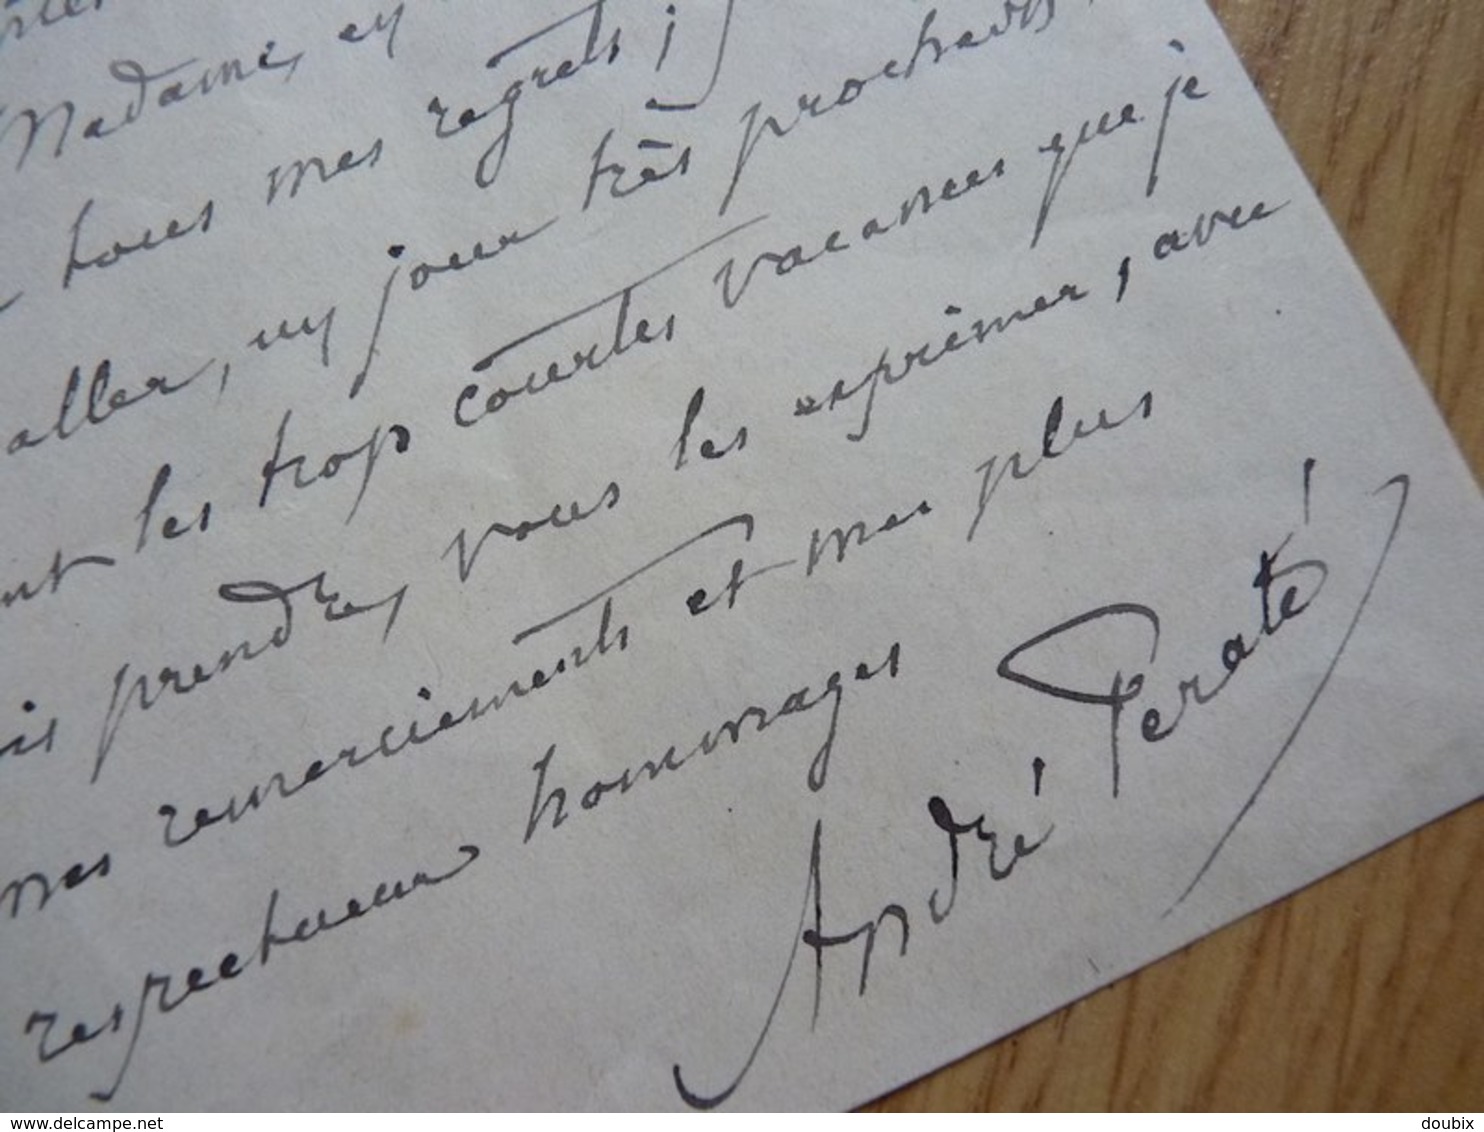 Madame, en
tous mes regrets ; j
aller, un jour très prochain,
les trop courtes vacances que je
prendre, vous les exprimer, avec
mes remerciements et mes plus
respectueux hommages
André Peraté
www.delcampe.net
doubix